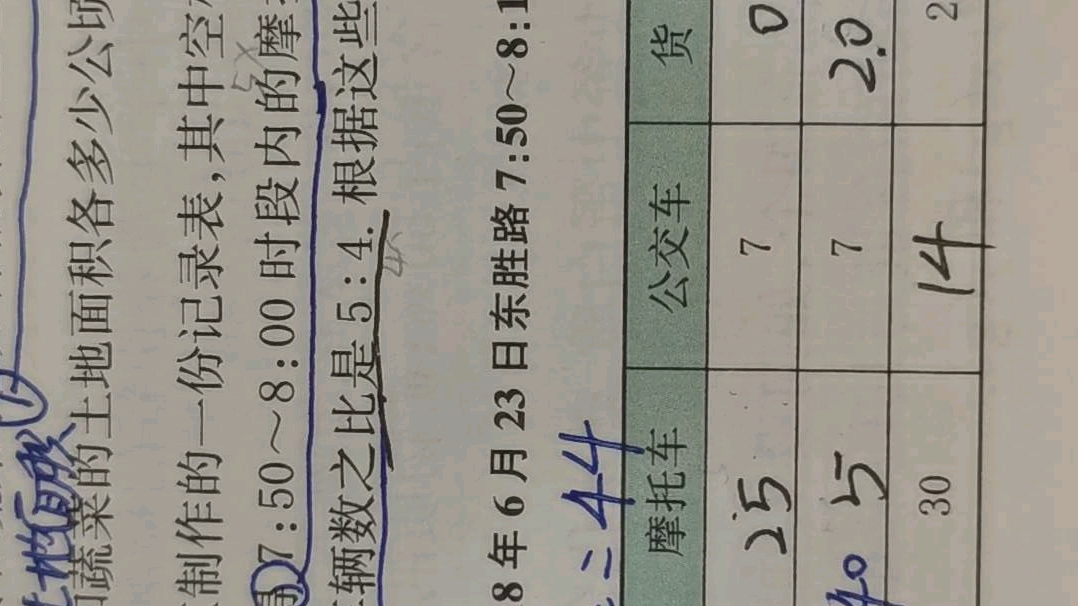 和蔬菜的土地面积各多少公顷
制作的一份记录表,其中空
7:50~8:00时段内的摩
辆数之比是5:4.根据这些
8年6月23日东胜路7:50~8:1
=44
摩托车 公交车 货
25 7 0
5 7 20
30 14 2